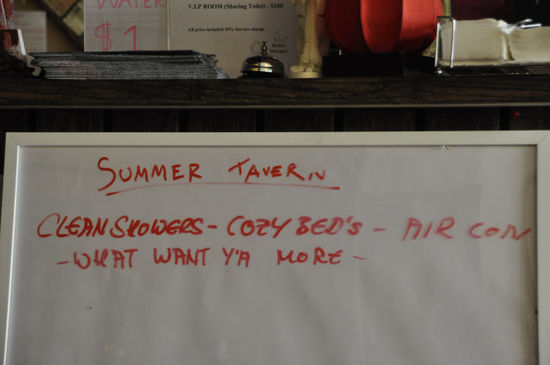 WATER
$1
V.I.P ROOM (Sharing Toilet) - $100
All price included 10% Service charge.
SUMMER TAVERN
CLEAN SHOWERS - COZY BED'S - AIR CON
- WHAT WANT Y'A MORE -